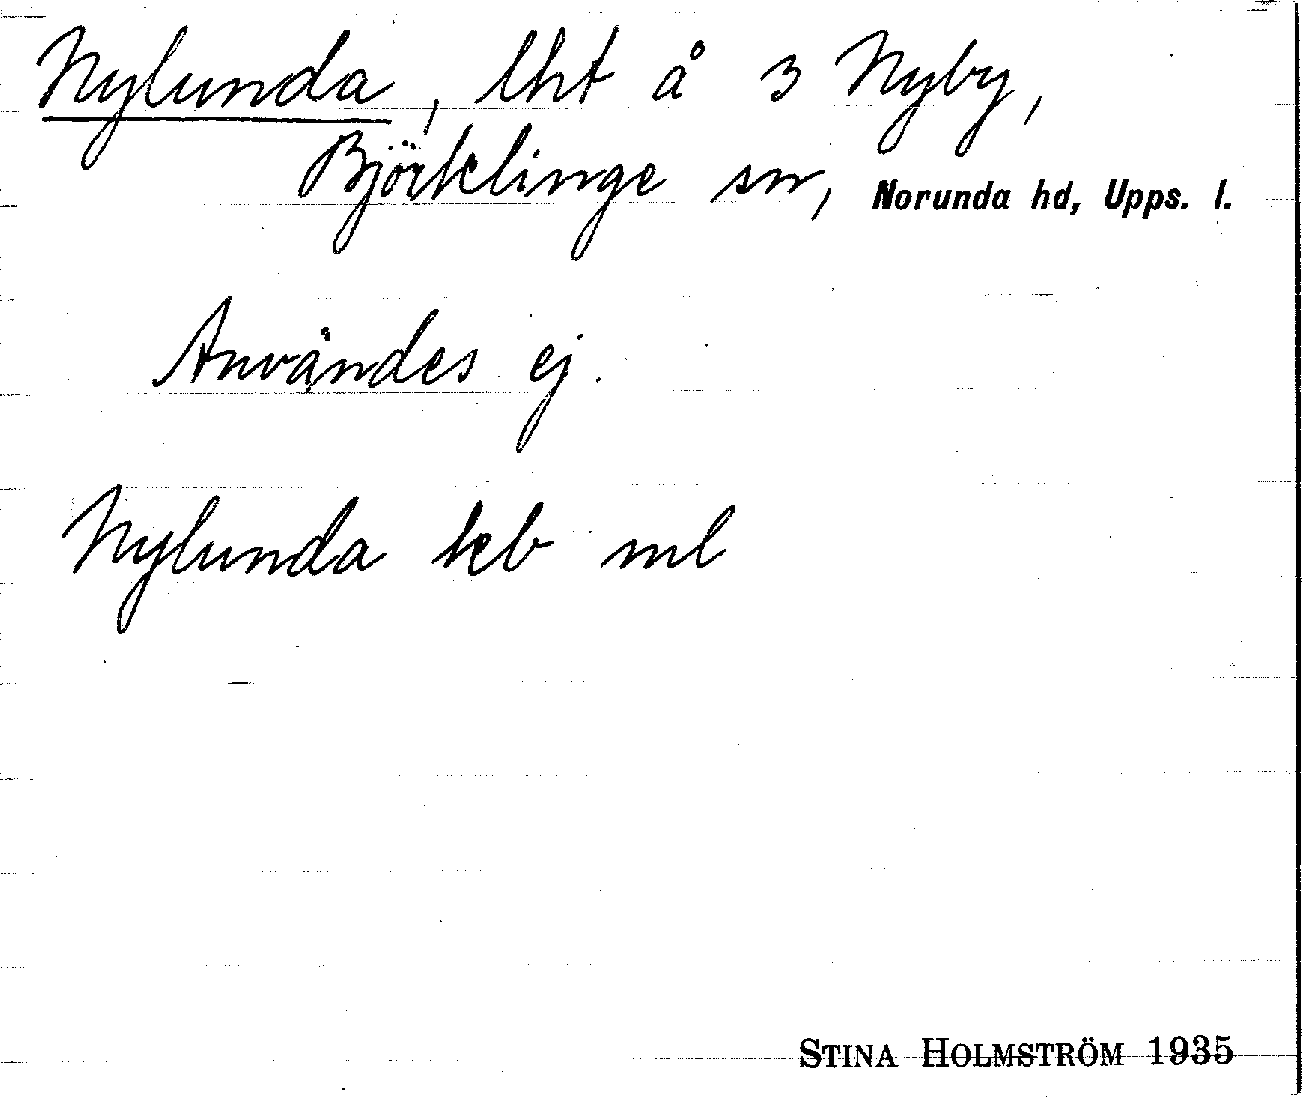 Nylunda, lht å 3 Nyby,
Björklinge sn, Norunda hd, Upps. l.
Användes ej.
Nylunda keb ml
STINA HOLMSTRÖM 1935